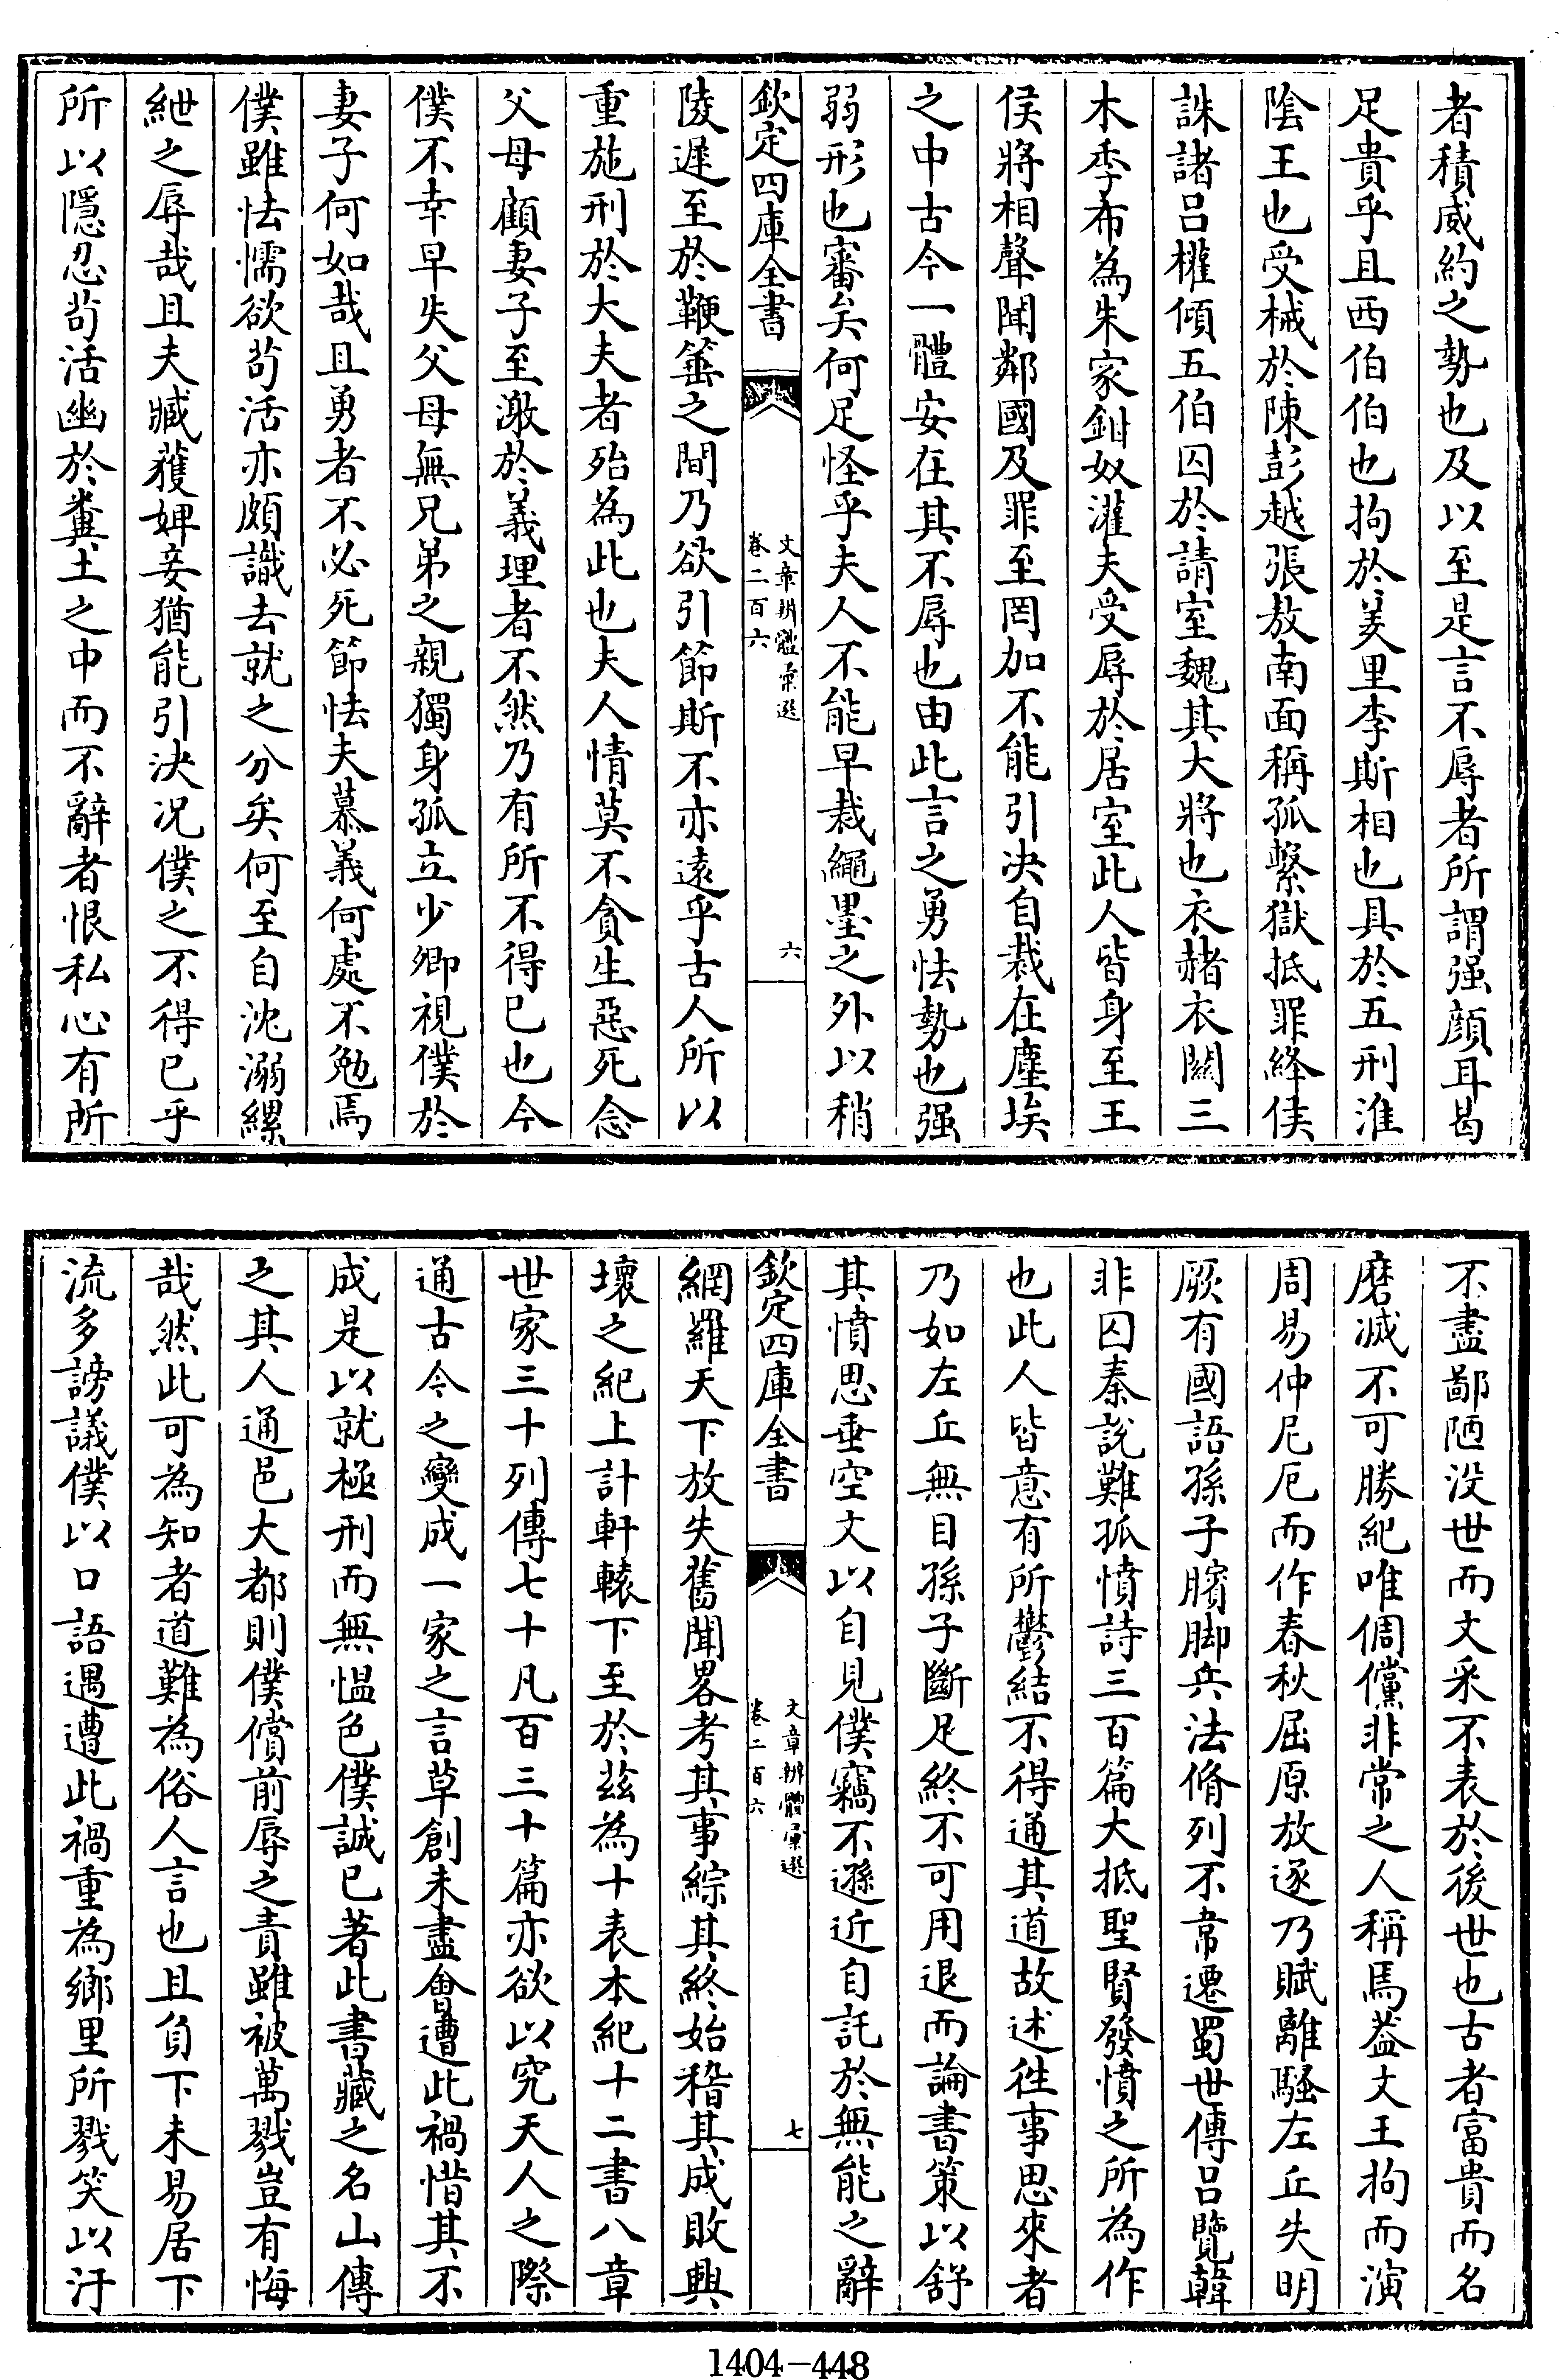 者積威約之勢也及以至是言不辱者所謂强顔耳曷
足貴乎且西伯伯也拘於羑里李斯相也具於五刑淮
陰王也受械於陳彭越張敖南面稱孤繫獄抵罪絳侯
誅諸吕權傾五伯囚於請室魏其大將也衣赭衣關三
木季布為朱家鉗奴灌夫受辱於居室此人皆身至王
侯將相聲聞鄰國及罪至罔加不能引决自裁在塵埃
之中古今一體安在其不辱也由此言之勇怯勢也强
弱形也審矣何足怪乎夫人不能早裁繩墨之外以稍
欽定四庫全書
文章辨體彙選
卷二百六
六
陵遲至於鞭箠之間乃欲引節斯不亦遠乎古人所以
重施刑於大夫者殆為此也夫人情莫不貪生惡死念
父母顧妻子至激於義理者不然乃有所不得已也今
僕不幸早失父母無兄弟之親獨身孤立少卿視僕於
妻子何如哉且勇者不必死節怯夫慕義何處不勉焉
僕雖怯懦欲苟活亦頗識去就之分矣何至自沈溺縲
紲之辱哉且夫臧獲婢妾猶能引決况僕之不得已乎
所以隱忍苟活幽於糞土之中而不辭者恨私心有所
不盡鄙陋没世而文采不表於後世也古者富貴而名
磨滅不可勝紀唯倜儻非常之人稱焉葢文王拘而演
周易仲尼厄而作春秋屈原放逐乃賦離騷左丘失明
厥有國語孫子臏脚兵法脩列不韋遷蜀世傳吕覽韓
非囚秦説難孤憤詩三百篇大抵聖賢發憤之所為作
也此人皆意有所鬱結不得通其道故述徃事思來者
乃如左丘無目孫子斷足終不可用退而論書策以舒
其憤思垂空文以自見僕竊不遜近自託於無能之辭
欽定四庫全書
文章辨體彙選
卷二百六
七
網羅天下放失舊聞畧考其事綜其終始稽其成敗興
壞之紀上計軒轅下至於兹為十表本紀十二書八章
世家三十列傳七十凡百三十篇亦欲以究天人之際
通古今之變成一家之言草創未盡會遭此禍惜其不
成是以就極刑而無愠色僕誠已著此書藏之名山傳
之其人通邑大都則僕償前辱之責雖被萬戮豈有悔
哉然此可為知者道難為俗人言也且負下未易居下
流多謗議僕以口語遇遭此禍重為鄉里所戮笑以汙
1404-448